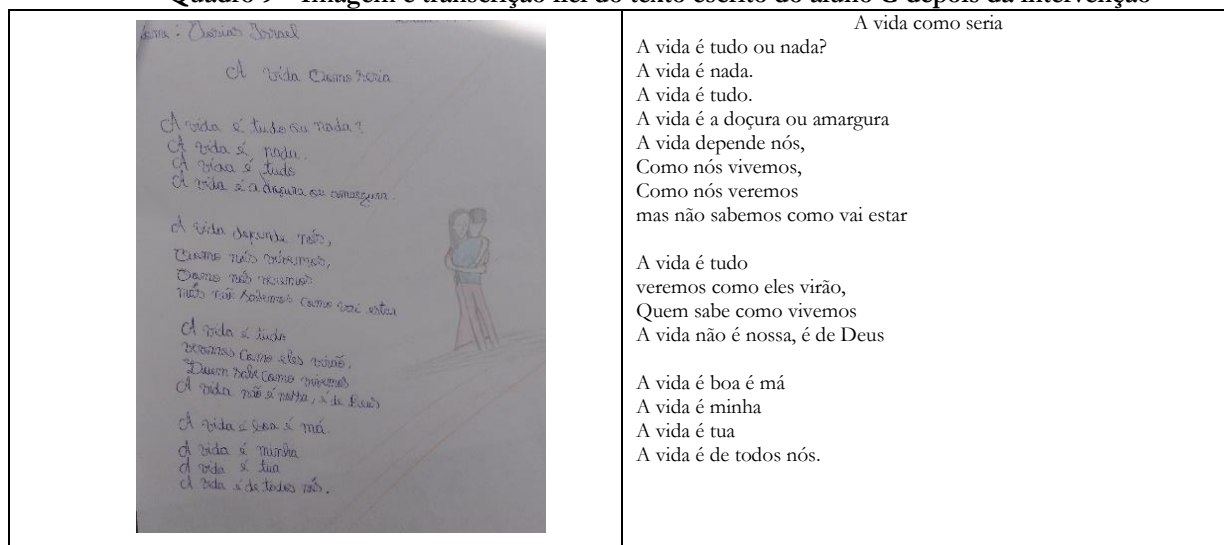 Quadro 9 – Imagem e transcrição fiel do texto escrito do aluno G depois da intervenção
A vida como seria
A vida é tudo ou nada?
A vida é nada.
A vida é tudo
A vida é a doçura ou amargura.
A vida depende nós,
Como nós vivemos,
Como nós veremos
mas não sabemos como vai estar
A vida é tudo
veremos como eles virão,
Quem sabe como vivemos
A vida não é nossa, é de Deus
A vida é boa é má.
A vida é minha
A vida é tua
A vida é de todos nós.
A vida como seria
A vida é tudo ou nada?
A vida é nada.
A vida é tudo.
A vida é a doçura ou amargura
A vida depende nós,
Como nós vivemos,
Como nós veremos
mas não sabemos como vai estar
A vida é tudo
veremos como eles virão,
Quem sabe como vivemos
A vida não é nossa, é de Deus
A vida é boa é má
A vida é minha
A vida é tua
A vida é de todos nós.